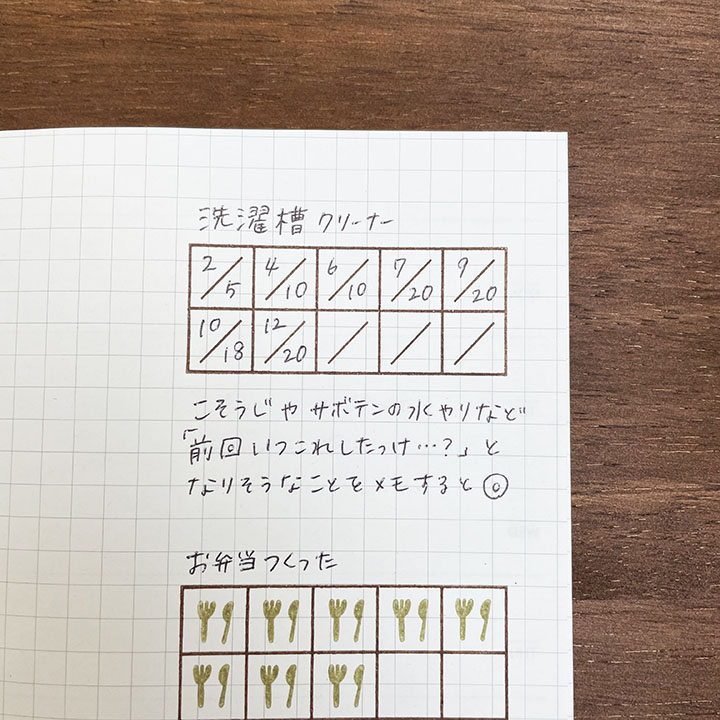 洗濯槽クリーナー
2/5 4/10 6/10 7/20 9/20
10/18 12/20 / / /
こそうじやサボテンの水やりなど
「前回いつこれしたっけ…?」と
なりそうなことをメモすると◎
お弁当つくった